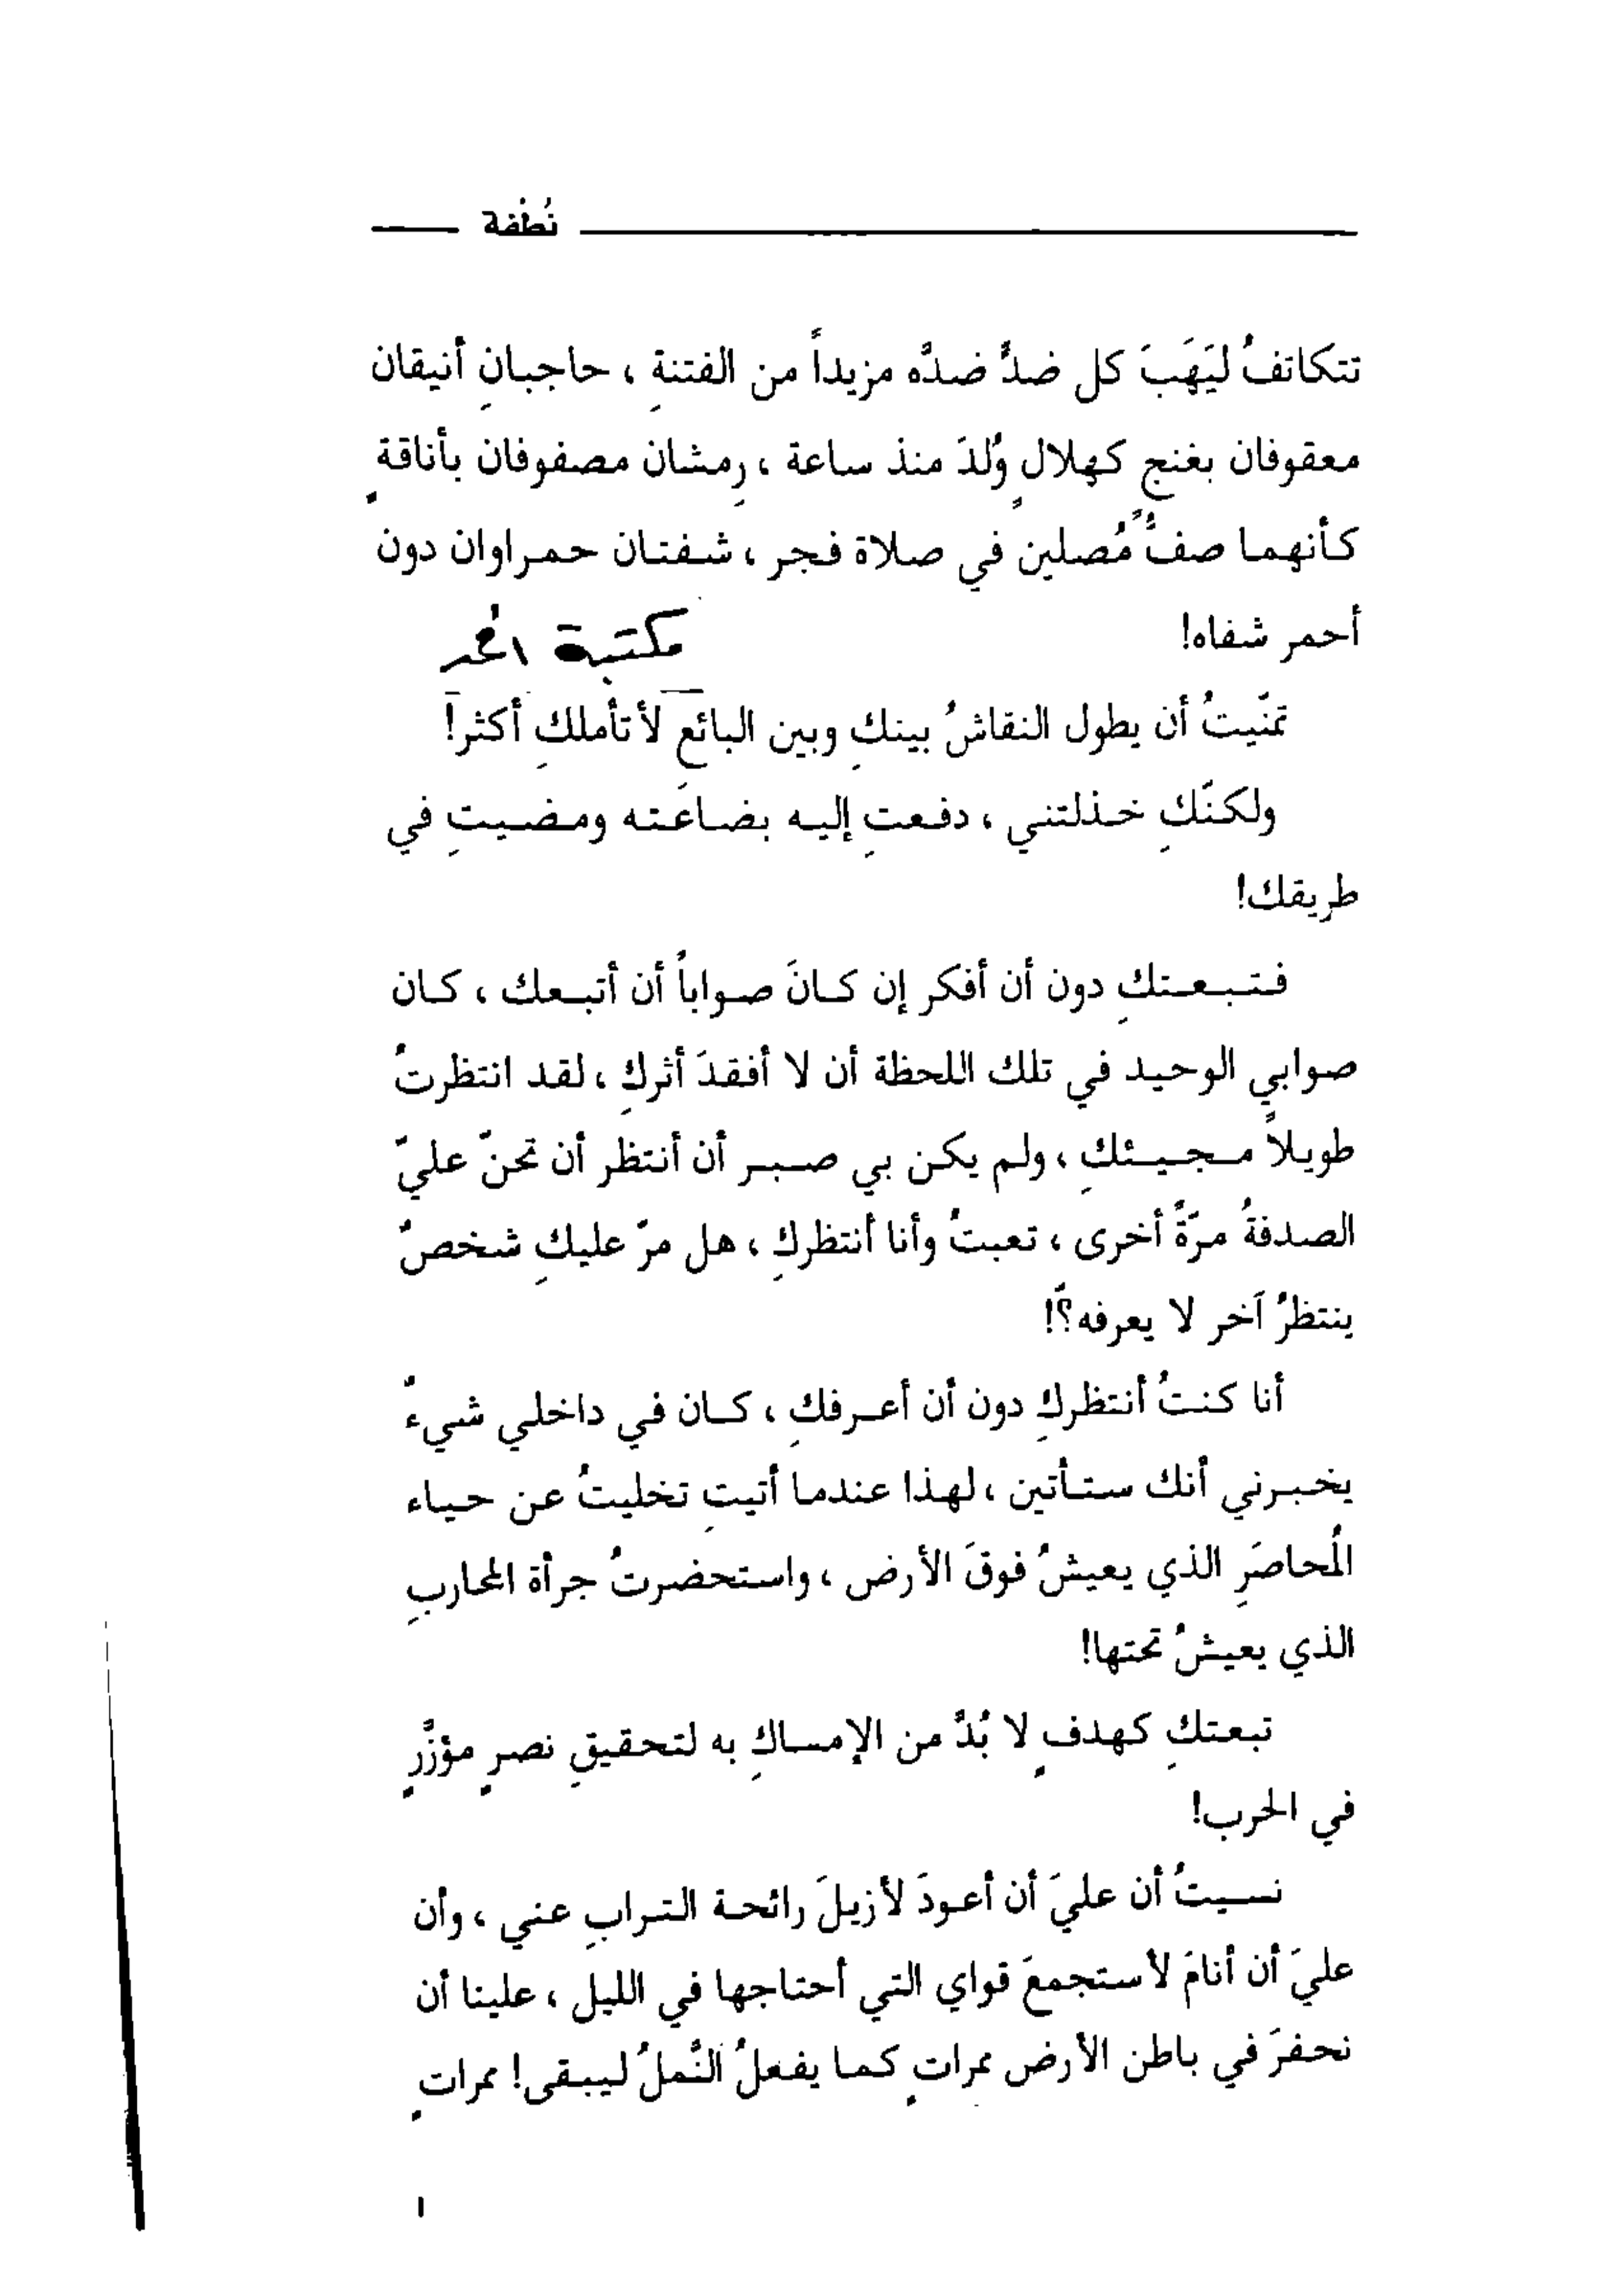 نُطْفة
تتكاتفُ ليَهَبَ كل ضدٍّ ضدَّه مزيداً من الفتنةِ ، حاجبانِ أنيقان
معقوفان بغنجٍ كهلالٍ وُلدَ منذ ساعة ، رِمشان مصفوفان بأناقةٍ
كأنهما صفُّ مُصلين في صلاة فجر ، شفتان حمراوان دون
أحمر شفاه!
مكتبة
تمنّيتُ أن يطول النقاشُ بينكِ وبين البائع لأتأملكِ أكثر!
ولكنّكِ خذلتني ، دفعتِ إليه بضاعَته ومضيتِ في
طريقك!
فتبعتكِ دون أن أفكر إن كانَ صواباً أن أتبعك ، كان
صوابي الوحيد في تلك اللحظة أن لا أفقدَ أثركِ ، لقد انتظرتُ
طويلاً مجيئكِ ، ولم يكن بي صبر أن أنتظر أن تحنّ عليّ
الصدفةُ مرّةً أخرى ، تعبتُ وأنا أنتظركِ ، هل مرّ عليكِ شخصٌ
ينتظرُ آخر لا يعرفه؟!
أنا كنتُ أنتظركِ دون أن أعرفكِ ، كان في داخلي شيءٌ
يخبرني أنك ستأتين ، لهذا عندما أتيتِ تخليتُ عن حياء
المُحاصَرِ الذي يعيشُ فوقَ الأرض ، واستحضرتُ جرأة المحاربِ
الذي يعيشُ تحتها!
تبعتكِ كهدفٍ لا بُدَّ من الإمساكِ به لتحقيقِ نصرٍ مؤزَّرٍ
في الحرب!
نسيتُ أن عليَ أن أعودَ لأزيلَ رائحة الترابِ عني ، وأن
عليَ أن أنامَ لأستجمعَ قواي التي أحتاجها في الليل ، علينا أن
نحفرَ في باطن الأرض ممراتٍ كما يفعلُ النَّملُ ليبقى! ممراتٍ
١